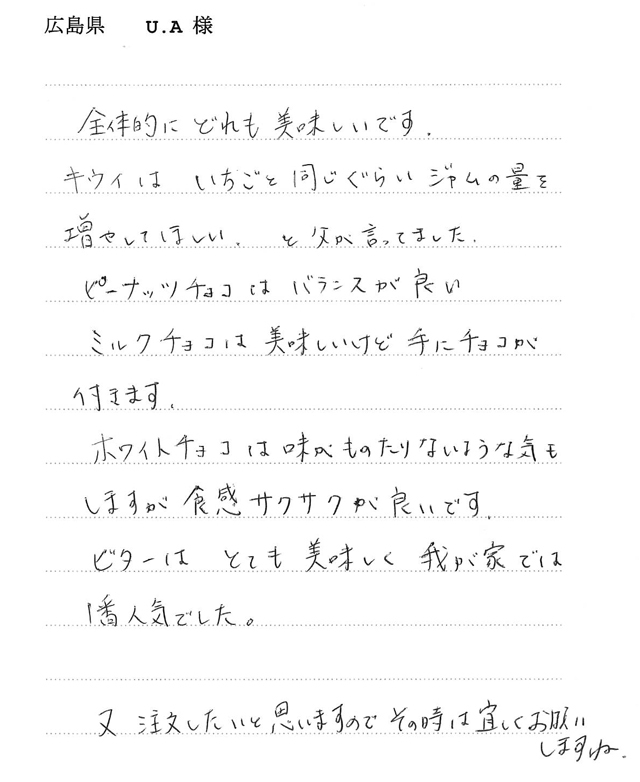 広島県 U.A 様
全体的に どれも 美味しいです.
キウイは いちごと 同じぐらい ジャムの量を
増やしてほしい. と父が言ってました.
ピーナッツチョコは バランスが良い
ミルクチョコは 美味しいけど 手にチョコが
付きます.
ホワイトチョコは味がものたりないような気も
しますが 食感サクサクが良いです.
ビターは とても 美味しく 我が家では
1番人気でした。
又 注文したいと思いますので その時は宜しくお願い
しますね.